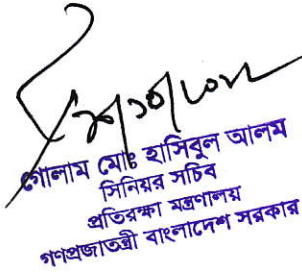 গোলাম মোঃ হাসিবুল আলম
সিনিয়র সচিব
প্রতিরক্ষা মন্ত্রণালয়
গণপ্রজাতন্ত্রী বাংলাদেশ সরকার